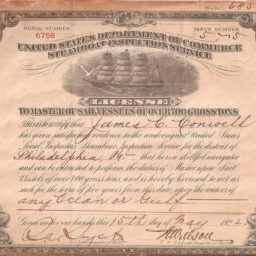 645
SERIAL NUMBER
ISSUE NUMBER
6756
5-5
UNITED STATES DEPARTMENT OF COMMERCE
STEAMBOAT INSPECTION SERVICE
LICENSE
TO MASTER OF SAIL VESSELS OF OVER 700 GROSS TONS.
This is to certify that James C. Conwell
has given satisfactory evidence to the undersigned United States
Local Inspectors, Steamboat Inspection Service, for the district of
Philadelphia, Pa. that he is a skillful navigator
and can be intrusted to perform the duties of Master upon Sail
Vessels of over 700 gross tons, and is hereby licensed to act as
such for the term of five years from this date, upon the waters of
any Ocean or Gulf
Given under our hands this 15th day of